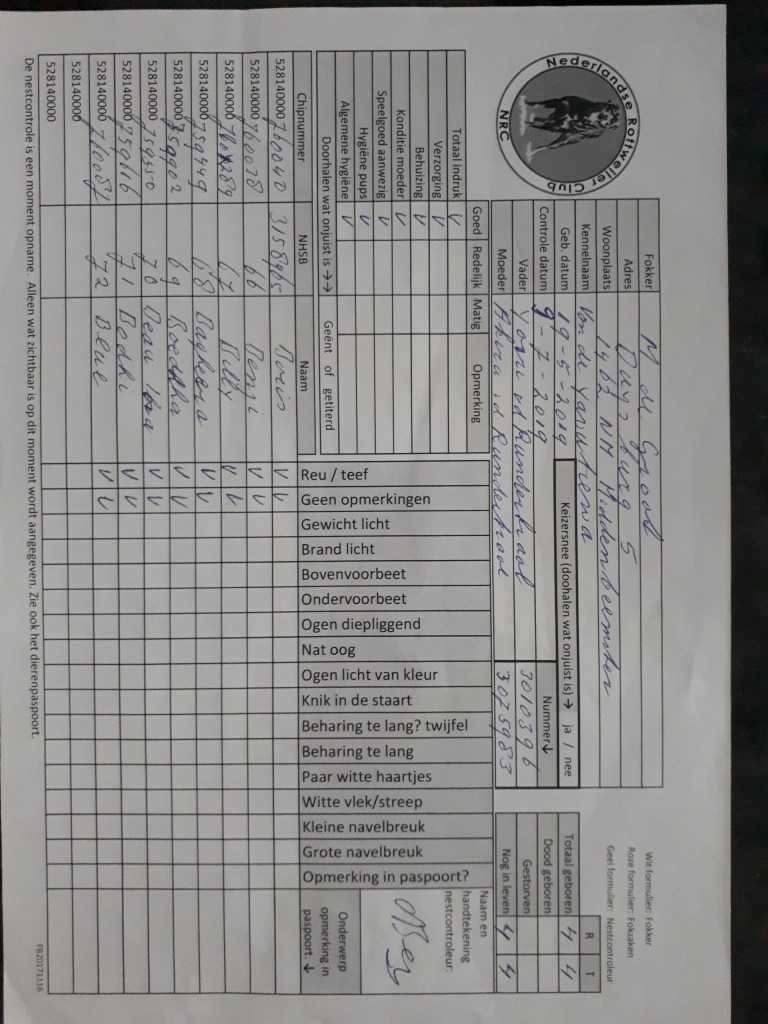 Nederlandse Rottweiler Club
NRC
Fokker M de Groot
Adres 5
Woonplaats 1462 NH Middenbeemster
Kennelnaam Von de
Geb. datum 19-5-2019 Keizersnee (doohalen wat onjuist is) → ja / nee
Controle datum 9-7-2019 Nummer↓
Vader Yorri vd Runderkraal 3010396
Moeder Akira vd Runderkraal 3075983
Wit formulier: Fokker
Roze formulier: Fokzaken
Geel formulier: Nestcontroleur
R T
Totaal geboren 4 4
Dood geboren
Gestorven
Nog in leven 4 4
Goed Redelijk Matig Opmerking
Totaal indruk V
Verzorging V
Behuizing V
Konditie moeder V
Speelgoed aanwezig V
Hygiëne pups V
Algemene hygiëne V
Doorhalen wat onjuist is →→ Geënt of getiterd
Naam en
handtekening
nestcontroleur:
Chipnummer NHSB Naam
Reu / teef
Geen opmerkingen
Gewicht licht
Brand licht
Bovenvoorbeet
Ondervoorbeet
Ogen diepliggend
Nat oog
Ogen licht van kleur
Knik in de staart
Beharing te lang? twijfel
Beharing te lang
Paar witte haartjes
Witte vlek/streep
Kleine navelbreuk
Grote navelbreuk
Opmerking in paspoort?
Onderwerp
opmerking in
paspoort. ↓
528140000760040 Boris V V
528140000760038 66 Benji V V
528140000 67 Billy V V
528140000759449 68 V V
528140000759902 69 V V
528140000759450 70 V V
528140000759616 71 Bodhi V V
528140000760087 72 V V
528140000
528140000
De nestcontrole is een moment opname. Alleen wat zichtbaar is op dit moment wordt aangegeven. Zie ook het dierenpaspoort.
FB20171116